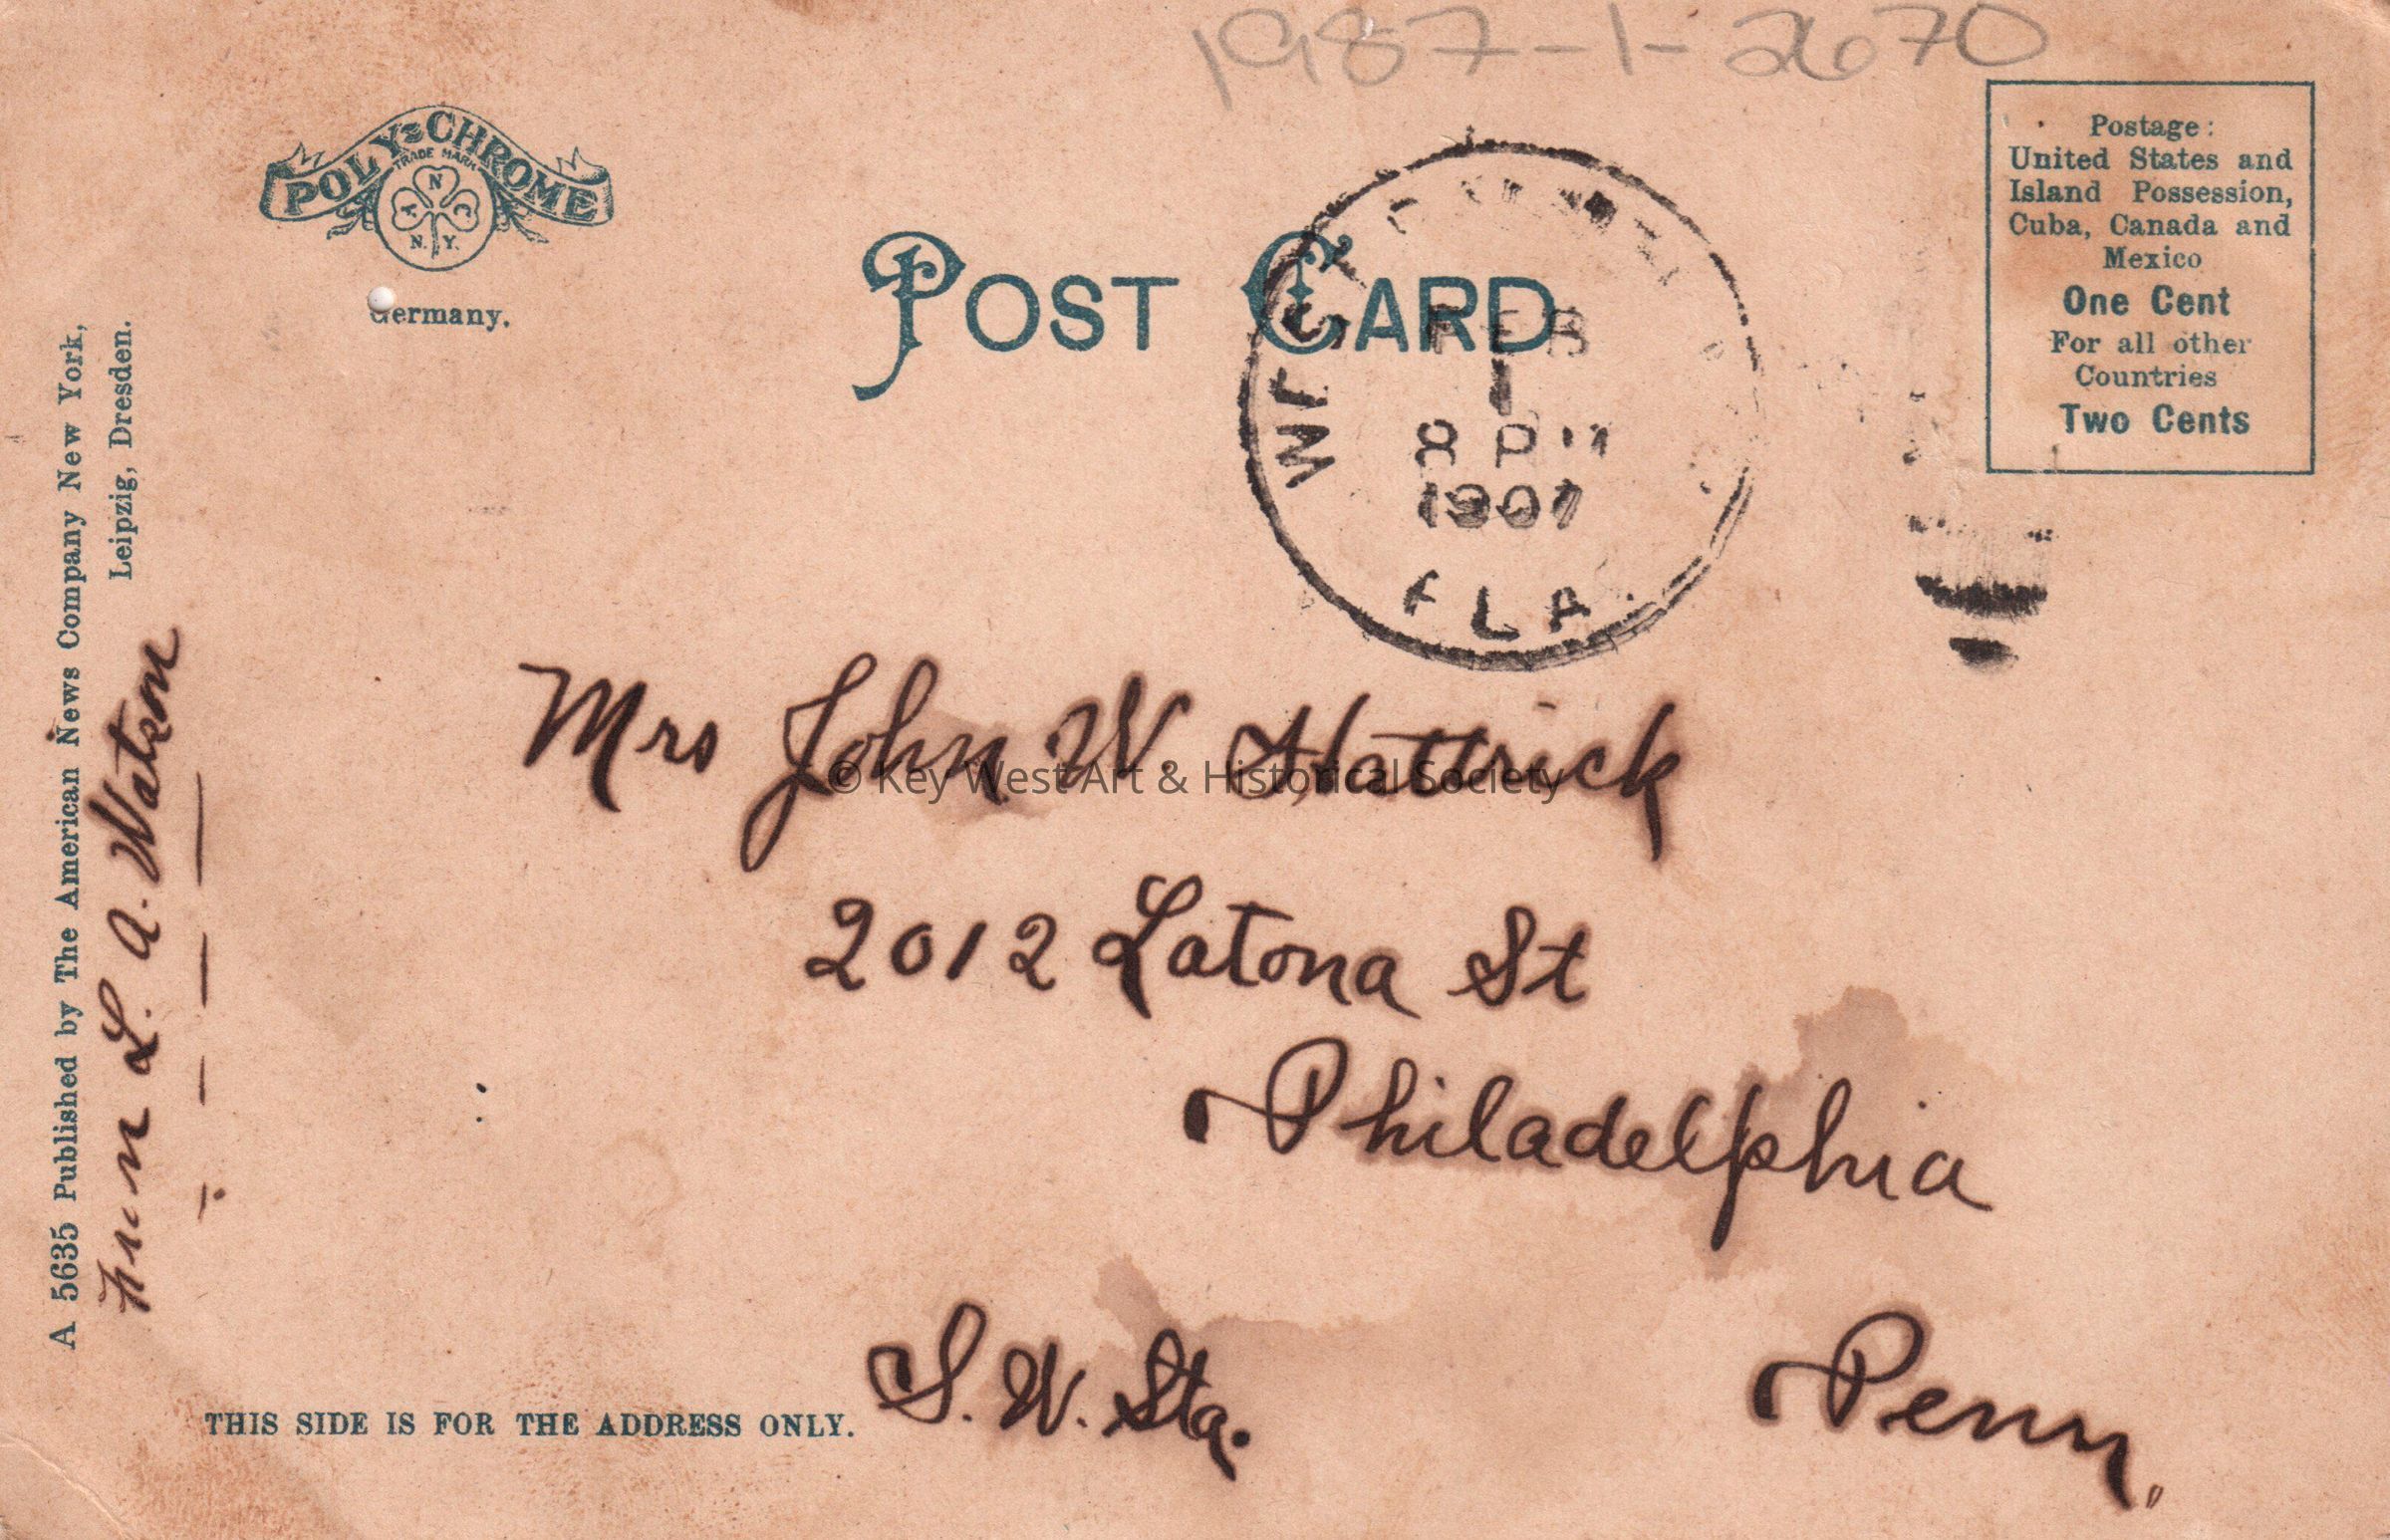 1987-1-2670
POLY-CHROME
TRADE MARK
N
Y. C.
N. Y.
Germany.
POST CARD
Postage:
United States and
Island Possession,
Cuba, Canada and
Mexico
One Cent
For all other
Countries
Two Cents
WEST
FEB
1
8 PM
1907
FLA.
A 5635 Published by The American News Company New York,
Leipzig, Dresden.
From L. A. Watson
Mrs John W. Hattrick
© Key West Art & Historical Society
2012 Latona St
Philadelphia
S. W. Sta.
Penn.
THIS SIDE IS FOR THE ADDRESS ONLY.